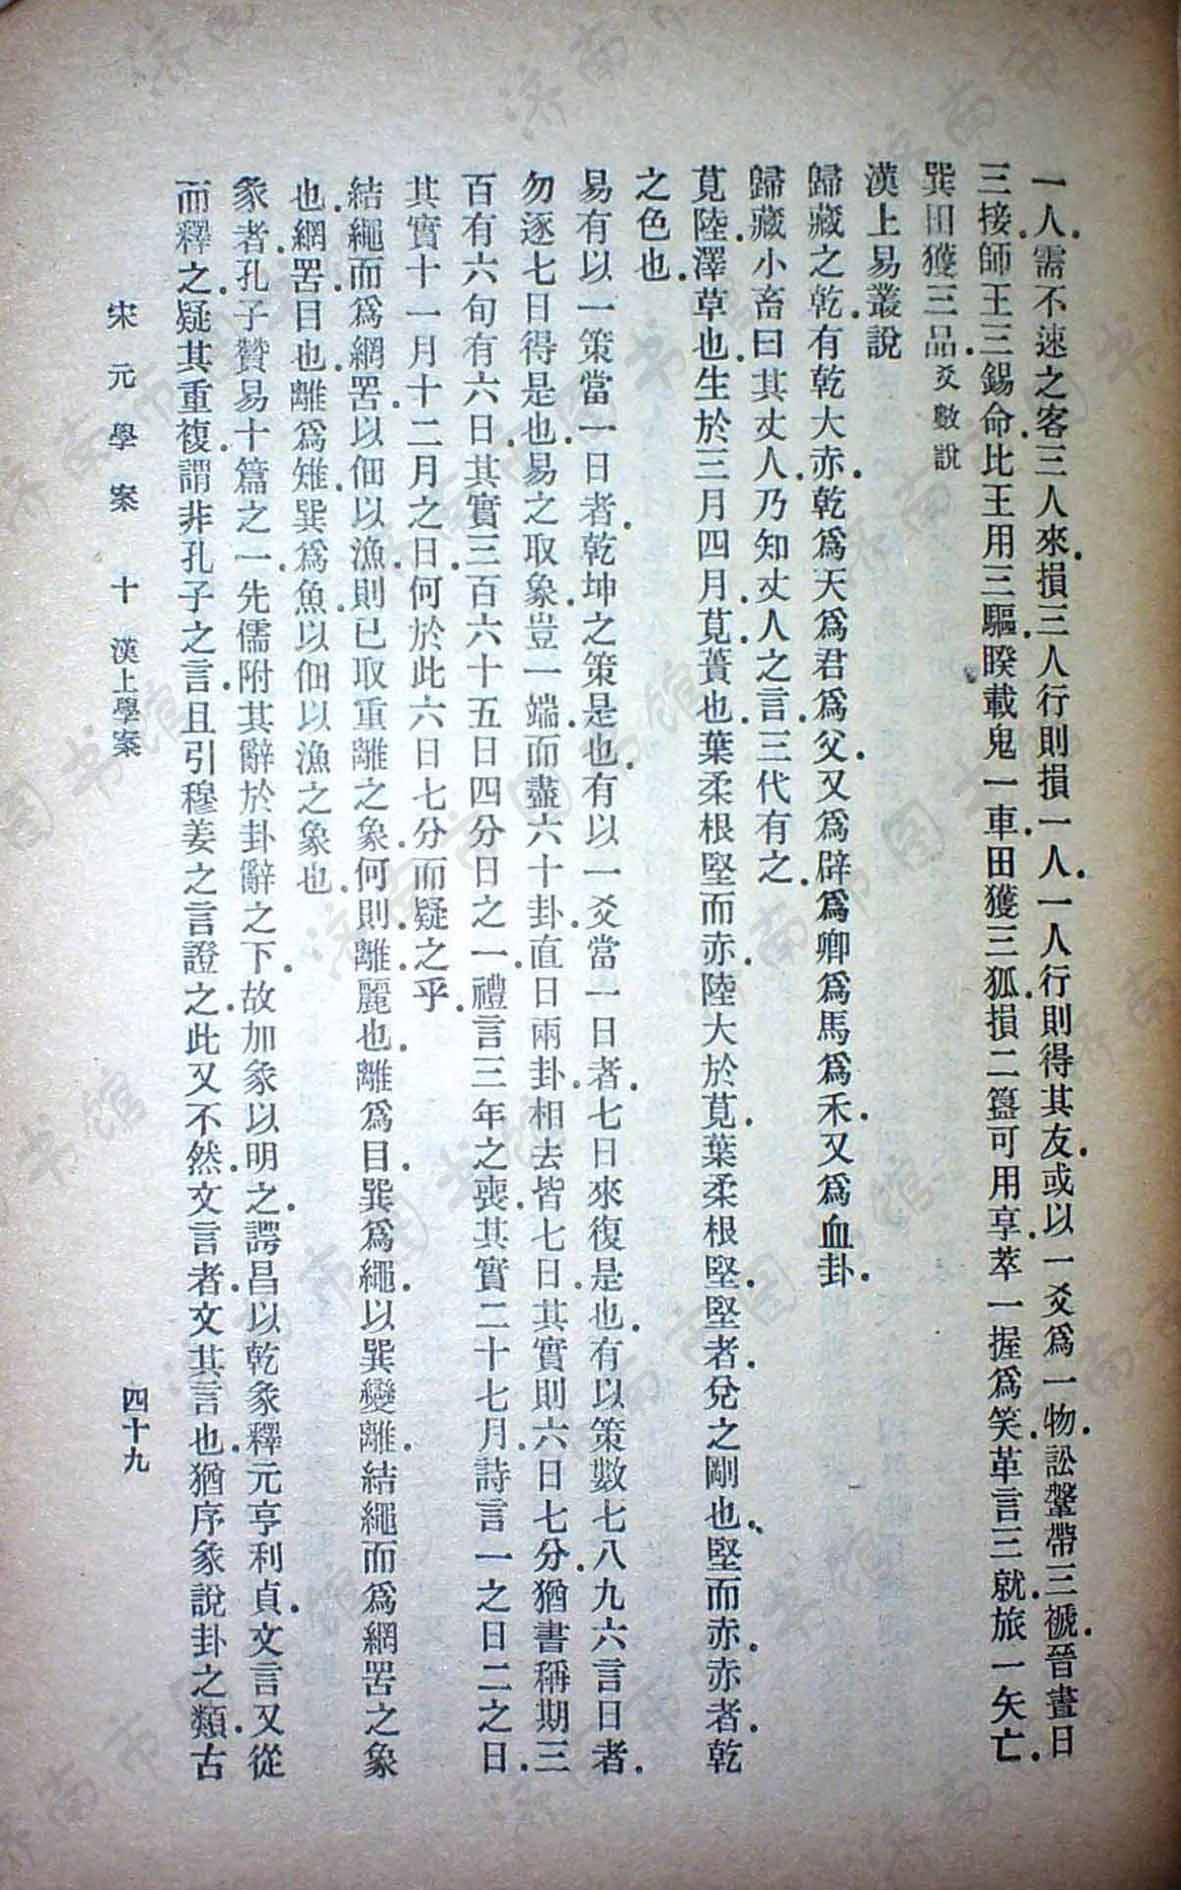 一人需不速之客三人來損三人行則損一人一人行則得其友或以一爻爲一物訟鞶帶三褫晉晝日
三接師王三錫命比王用三驅睽載鬼一車田獲三狐損二簋可用享萃一握爲笑革言三就旅一矢亡
巽田獲三品爻數說
漢上易叢說
歸藏之乾有乾大赤乾爲天爲君爲父又爲辟爲卿爲馬爲禾又爲血卦
歸藏小畜曰其丈人乃知丈人之言三代有之
莧陸澤草也生於三月四月莧蕢也葉柔根堅而赤陸大於莧葉柔根堅堅者兌之剛也堅而赤赤者乾
之色也
易有以一策當一日者乾坤之策是也有以一爻當一日者七日來復是也有以策數七八九六言日者
勿逐七日得是也易之取象豈一端而盡六十卦直日兩卦相去皆七日其實則六日七分猶書稱期三
百有六旬有六日其實三百六十五日四分日之一禮言三年之喪其實二十七月詩言一之日二之日
其實十一月十二月之日何於此六日七分而疑之乎
結繩而爲網罟以佃以漁則已取重離之象何則離麗也離爲目巽爲繩以巽變離結繩而爲網罟之象
也網罟目也離爲雉巽爲魚以佃以漁之象也
彖者孔子贊易十篇之一先儒附其辭於卦辭之下故加彖以明之諤昌以乾彖釋元亨利貞文言又從
而釋之疑其重複謂非孔子之言且引穆姜之言證之此又不然文言者文其言也猶序彖說卦之類古
宋元學案 十 漢上學案 四十九
济南市图书馆